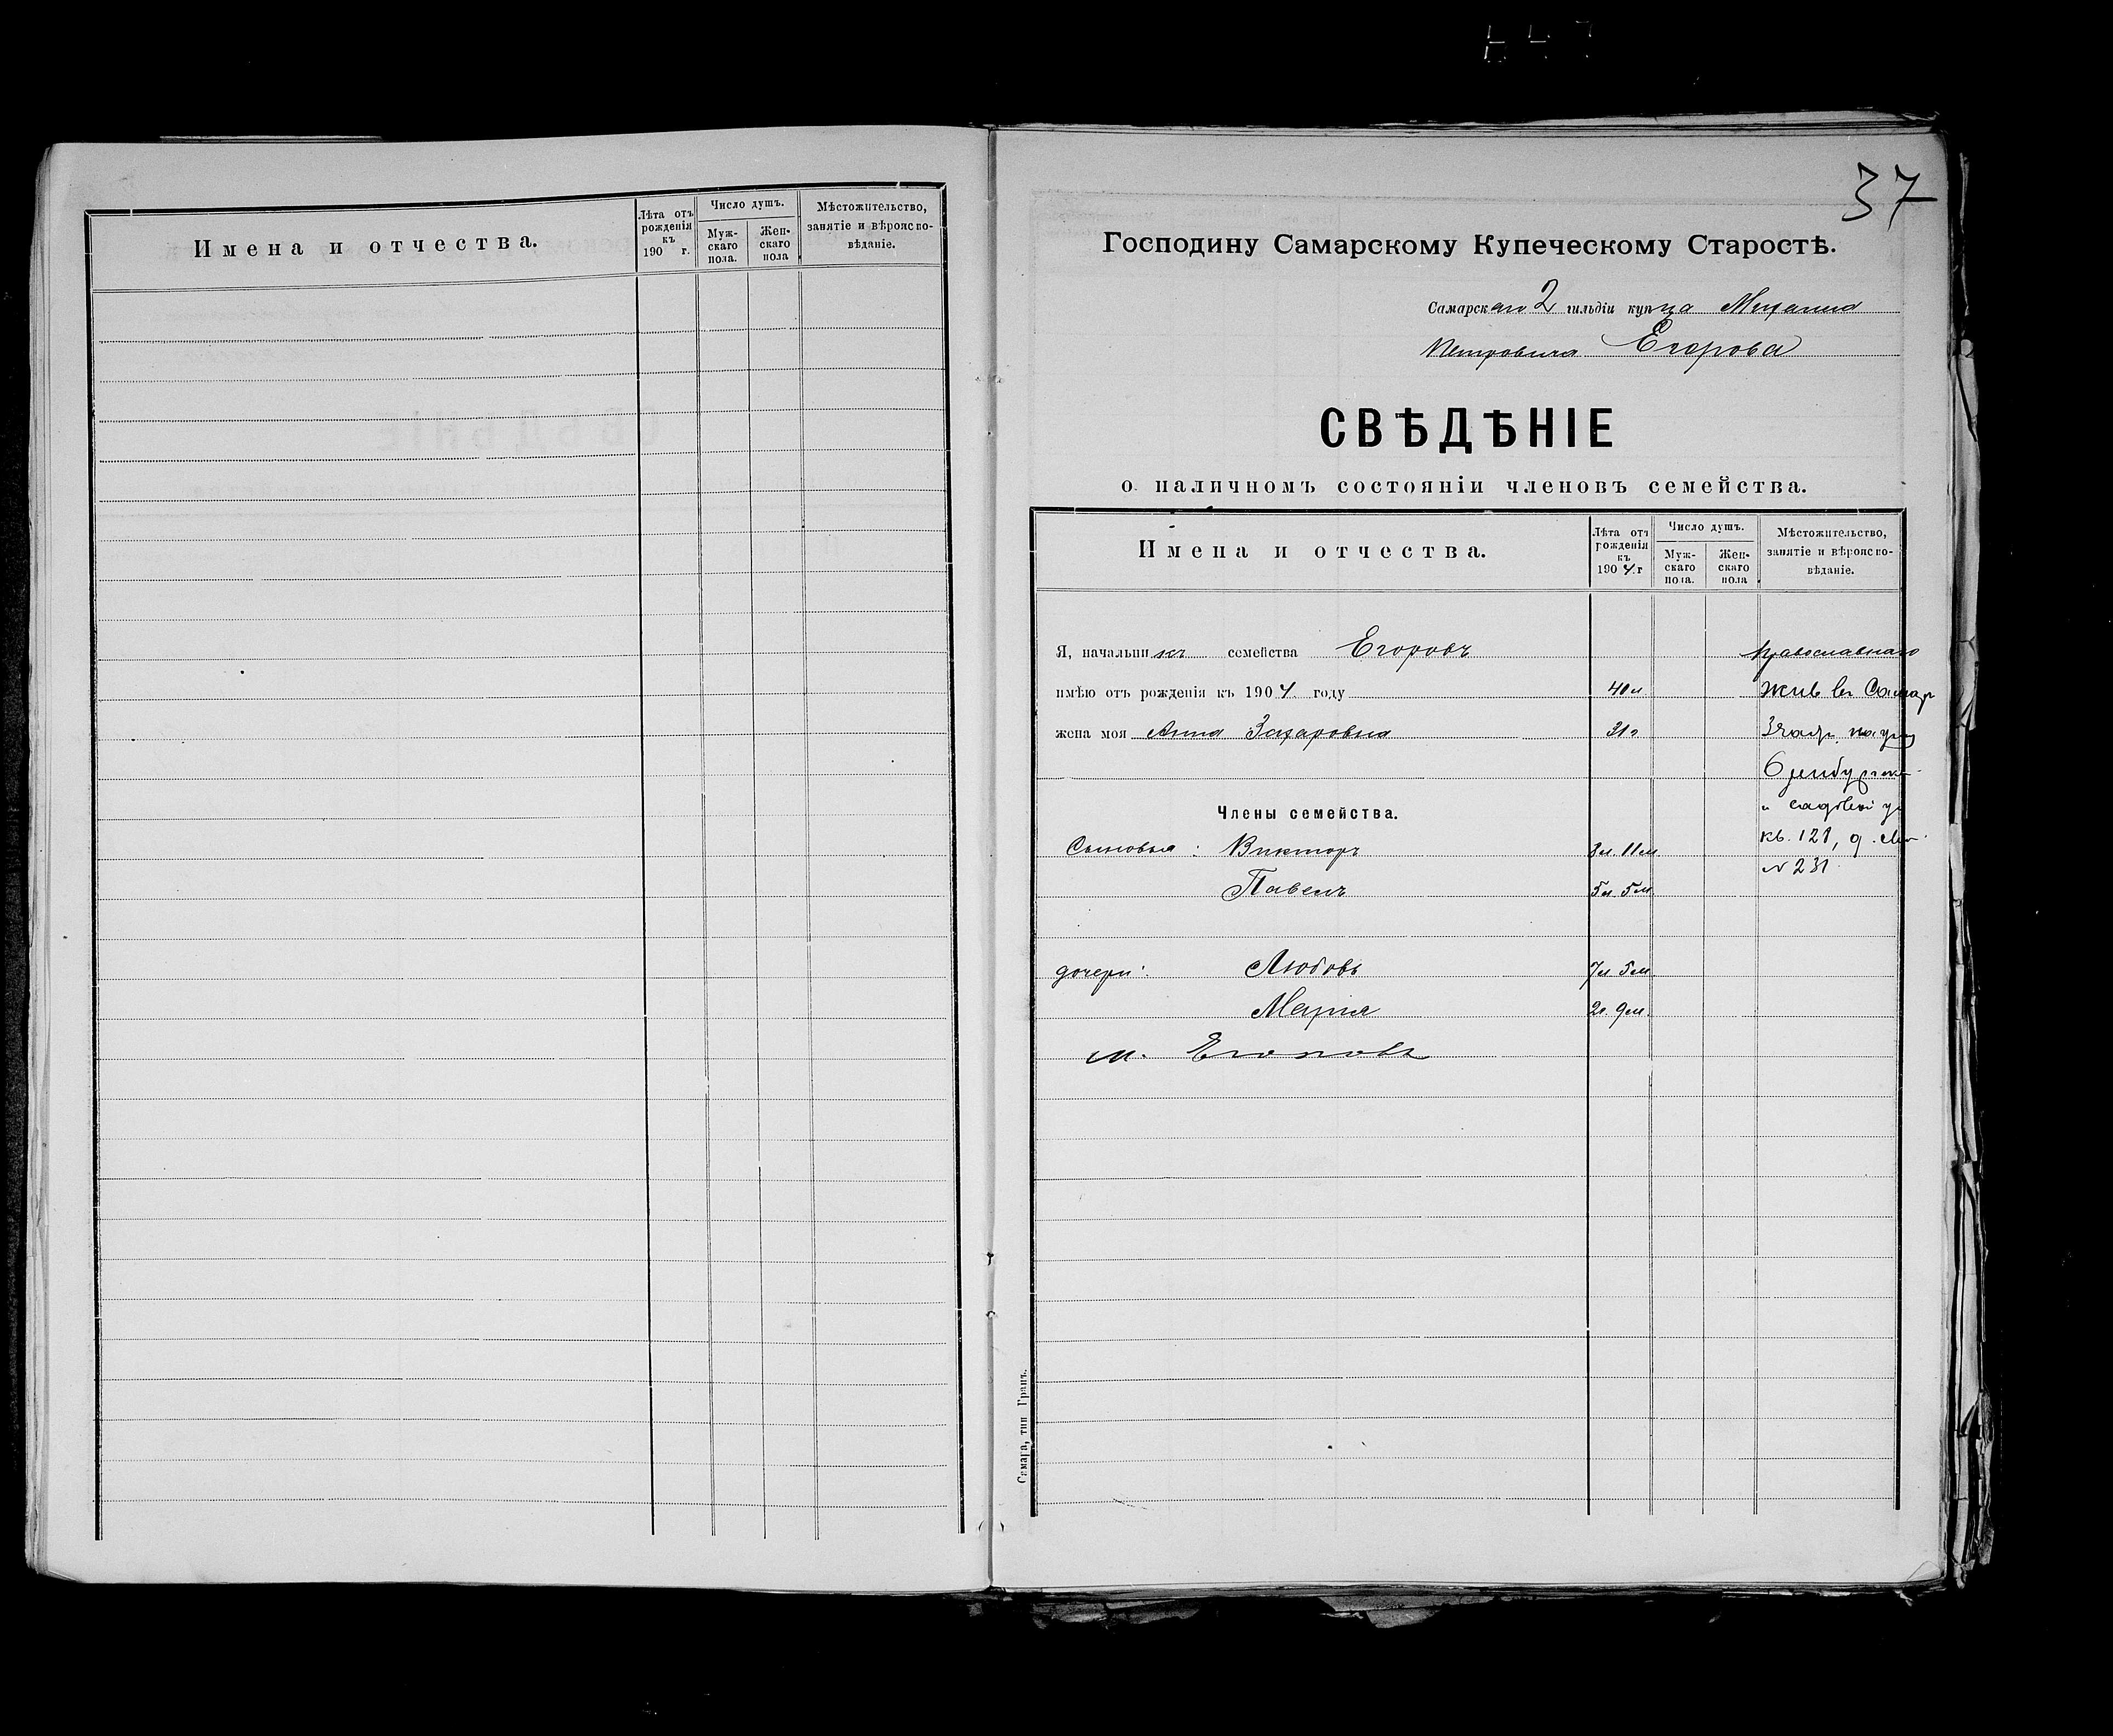 Имена и отчества.
Лѣта отъ рожденія къ 190 г.
Число душъ.
Муж-скаго пола.
Жен-скаго пола
Мѣстожительство, занятіе и вѣроиспо-вѣданіе.
37
Господину Самарскому Купеческому Старостѣ.
Самарскаго 2 гильдіи купца Михаила
Петровича Егорова
СВѢДѢНІЕ
о наличномъ состояніи членовъ семейства.
Имена и отчества.
Лѣта отъ рожденія къ 1904 г
Число душъ.
Муж-скаго пола.
Жен-скаго пола
Мѣстожительство, занятіе и вѣроиспо-вѣданіе.
Я, начальникъ семейства Егоровъ православнаго
имѣю отъ рожденія къ 1904 году 40 л Жив въ Самар
жена моя Анна Захаровна 31 г 3 части, на углу
Оренбургской
Члены семейства. и садовой ул
Сыновья: Викторъ 3 л. 11 м кв. 121, д.
Павелъ 5 л. 5 м. № 231
дочери: Любовь 7 л 5 м.
Марія 2 г. 9 м.
М. Егоровъ
Самара, тип Гранъ.